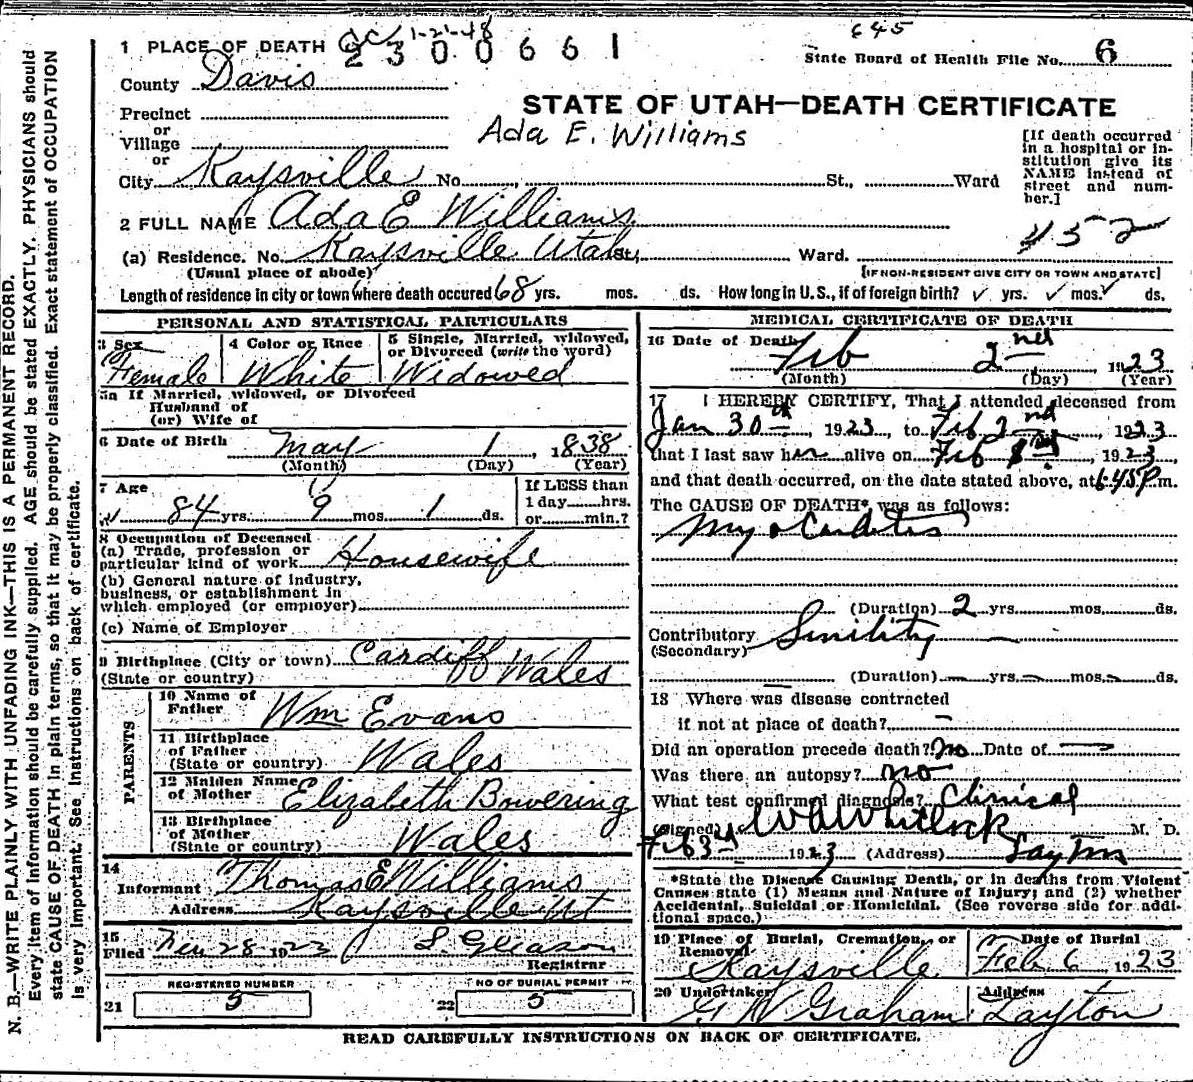 645
1 PLACE OF DEATH 1-21-48
2300661
State Board of Health File No. 6
County Davis
STATE OF UTAH—DEATH CERTIFICATE
Precinct
or
Ada E. Williams
Village
or
[If death occurred in a hospital or in-
stitution give its
NAME instead of
street and num-
ber.]
City Kaysville No. St., Ward
2 FULL NAME Ada E Williams
452
(a) Residence. No. Kaysville Utah St., Ward.
(Usual place of abode) [IF NON-RESIDENT GIVE CITY OR TOWN AND STATE]
Length of residence in city or town where death occured 68 yrs. mos. ds. How long in U.S., if of foreign birth? ✓ yrs. ✓ mos. ✓ ds.
PERSONAL AND STATISTICAL PARTICULARS
3 Sex 4 Color or Race 5 Single, Married, widowed,
or Divorced (write the word)
Female White Widowed
5a If Married, widowed, or Divorced
Husband of
(or) Wife of
6 Date of Birth May 1, 1838
(Month) (Day) (Year)
7 Age If LESS than
1 day hrs.
84 yrs. 9 mos. 1 ds. or min.?
8 Occupation of Deceased
(a) Trade, profession or
particular kind of work Housewife
(b) General nature of industry,
business, or establishment in
which employed (or employer)
(c) Name of Employer
9 Birthplace (City or town) Cardiff Wales
(State or country)
PARENTS
10 Name of
Father Wm Evans
11 Birthplace
of Father Wales
(State or country)
12 Maiden Name
of Mother Elizabeth Bowering
13 Birthplace
of Mother
(State or country) Wales
14
Informant Thomas E Williams
Address Kaysville Ut
15
Filed 28 1923 L Gleason
Registrar
REGISTERED NUMBER NO OF BURIAL PERMIT
21 5 22 5
MEDICAL CERTIFICATE OF DEATH
16 Date of Death Feb 2nd 1923
(Month) (Day) (Year)
17 I HEREBY CERTIFY, That I attended deceased from
Jan 30th, 1923, to Feb 2nd, 1923
that I last saw her alive on Feb, 1923,
and that death occurred, on the date stated above, at 6:45 P.m.
The CAUSE OF DEATH* was as follows:
Myocarditis
(Duration) 2 yrs. mos. ds.
Contributory Senility
(Secondary)
(Duration) yrs. mos. ds.
18 Where was disease contracted
if not at place of death?
Did an operation precede death? no Date of
Was there an autopsy? no
What test confirmed diagnosis? Clinical
(Signed) W A Whitlock M. D.
Feb 3rd 1923 (Address) Layton
*State the Disease Causing Death, or in deaths from Violent
Causes state (1) Means and Nature of Injury; and (2) whether
Accidental, Suicidal or Homicidal. (See reverse side for addi-
tional space.)
19 Place of Burial, Cremation, or Date of Burial
Removal
Kaysville Feb 6 1923
20 Undertaker Address
G W Graham Layton
READ CAREFULLY INSTRUCTIONS ON BACK OF CERTIFICATE.
N. B.—WRITE PLAINLY WITH UNFADING INK—THIS IS A PERMANENT RECORD.
Every item of information should be carefully supplied. AGE should be stated EXACTLY. PHYSICIANS should
state CAUSE OF DEATH in plain terms, so that it may be properly classified. Exact statement of OCCUPATION
is very important. See instructions on back of certificate.